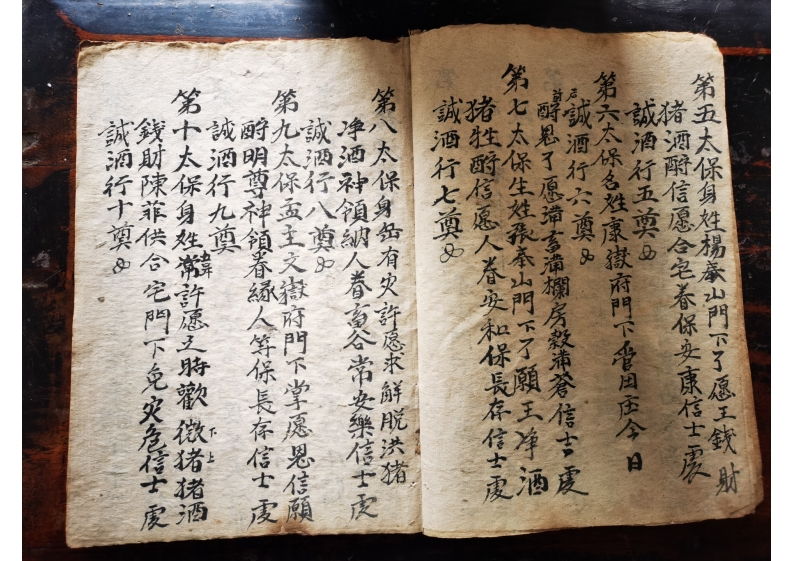 第五太保身姓楊泰山門下了愿王錢財
猪酒酧信愿合宅眷保安康信士震
誠酒行五奠
第六太保名姓康嶽府門下管田庄今日
酧恩了愿满畜满欄房穀满蒼信士處
誠酒行六奠
第七太保生姓張泰山門下了願王净酒
猪牲酧信愿人眷安和保長存信士處
誠酒行七奠
第八太保身 有灾許愿求解脱洪猪
净酒神領納人眷畜谷常安樂信士處
誠酒行八奠
第九太保孟主文嶽府門下掌愿恩信願
酧明尊神領眷緣人等保長存信士處
誠酒行九奠
第十太保身姓常韋許愿之時歡微猪猪酒
下上
錢財陳菲供合宅門下免灾危信士處
誠酒行十奠